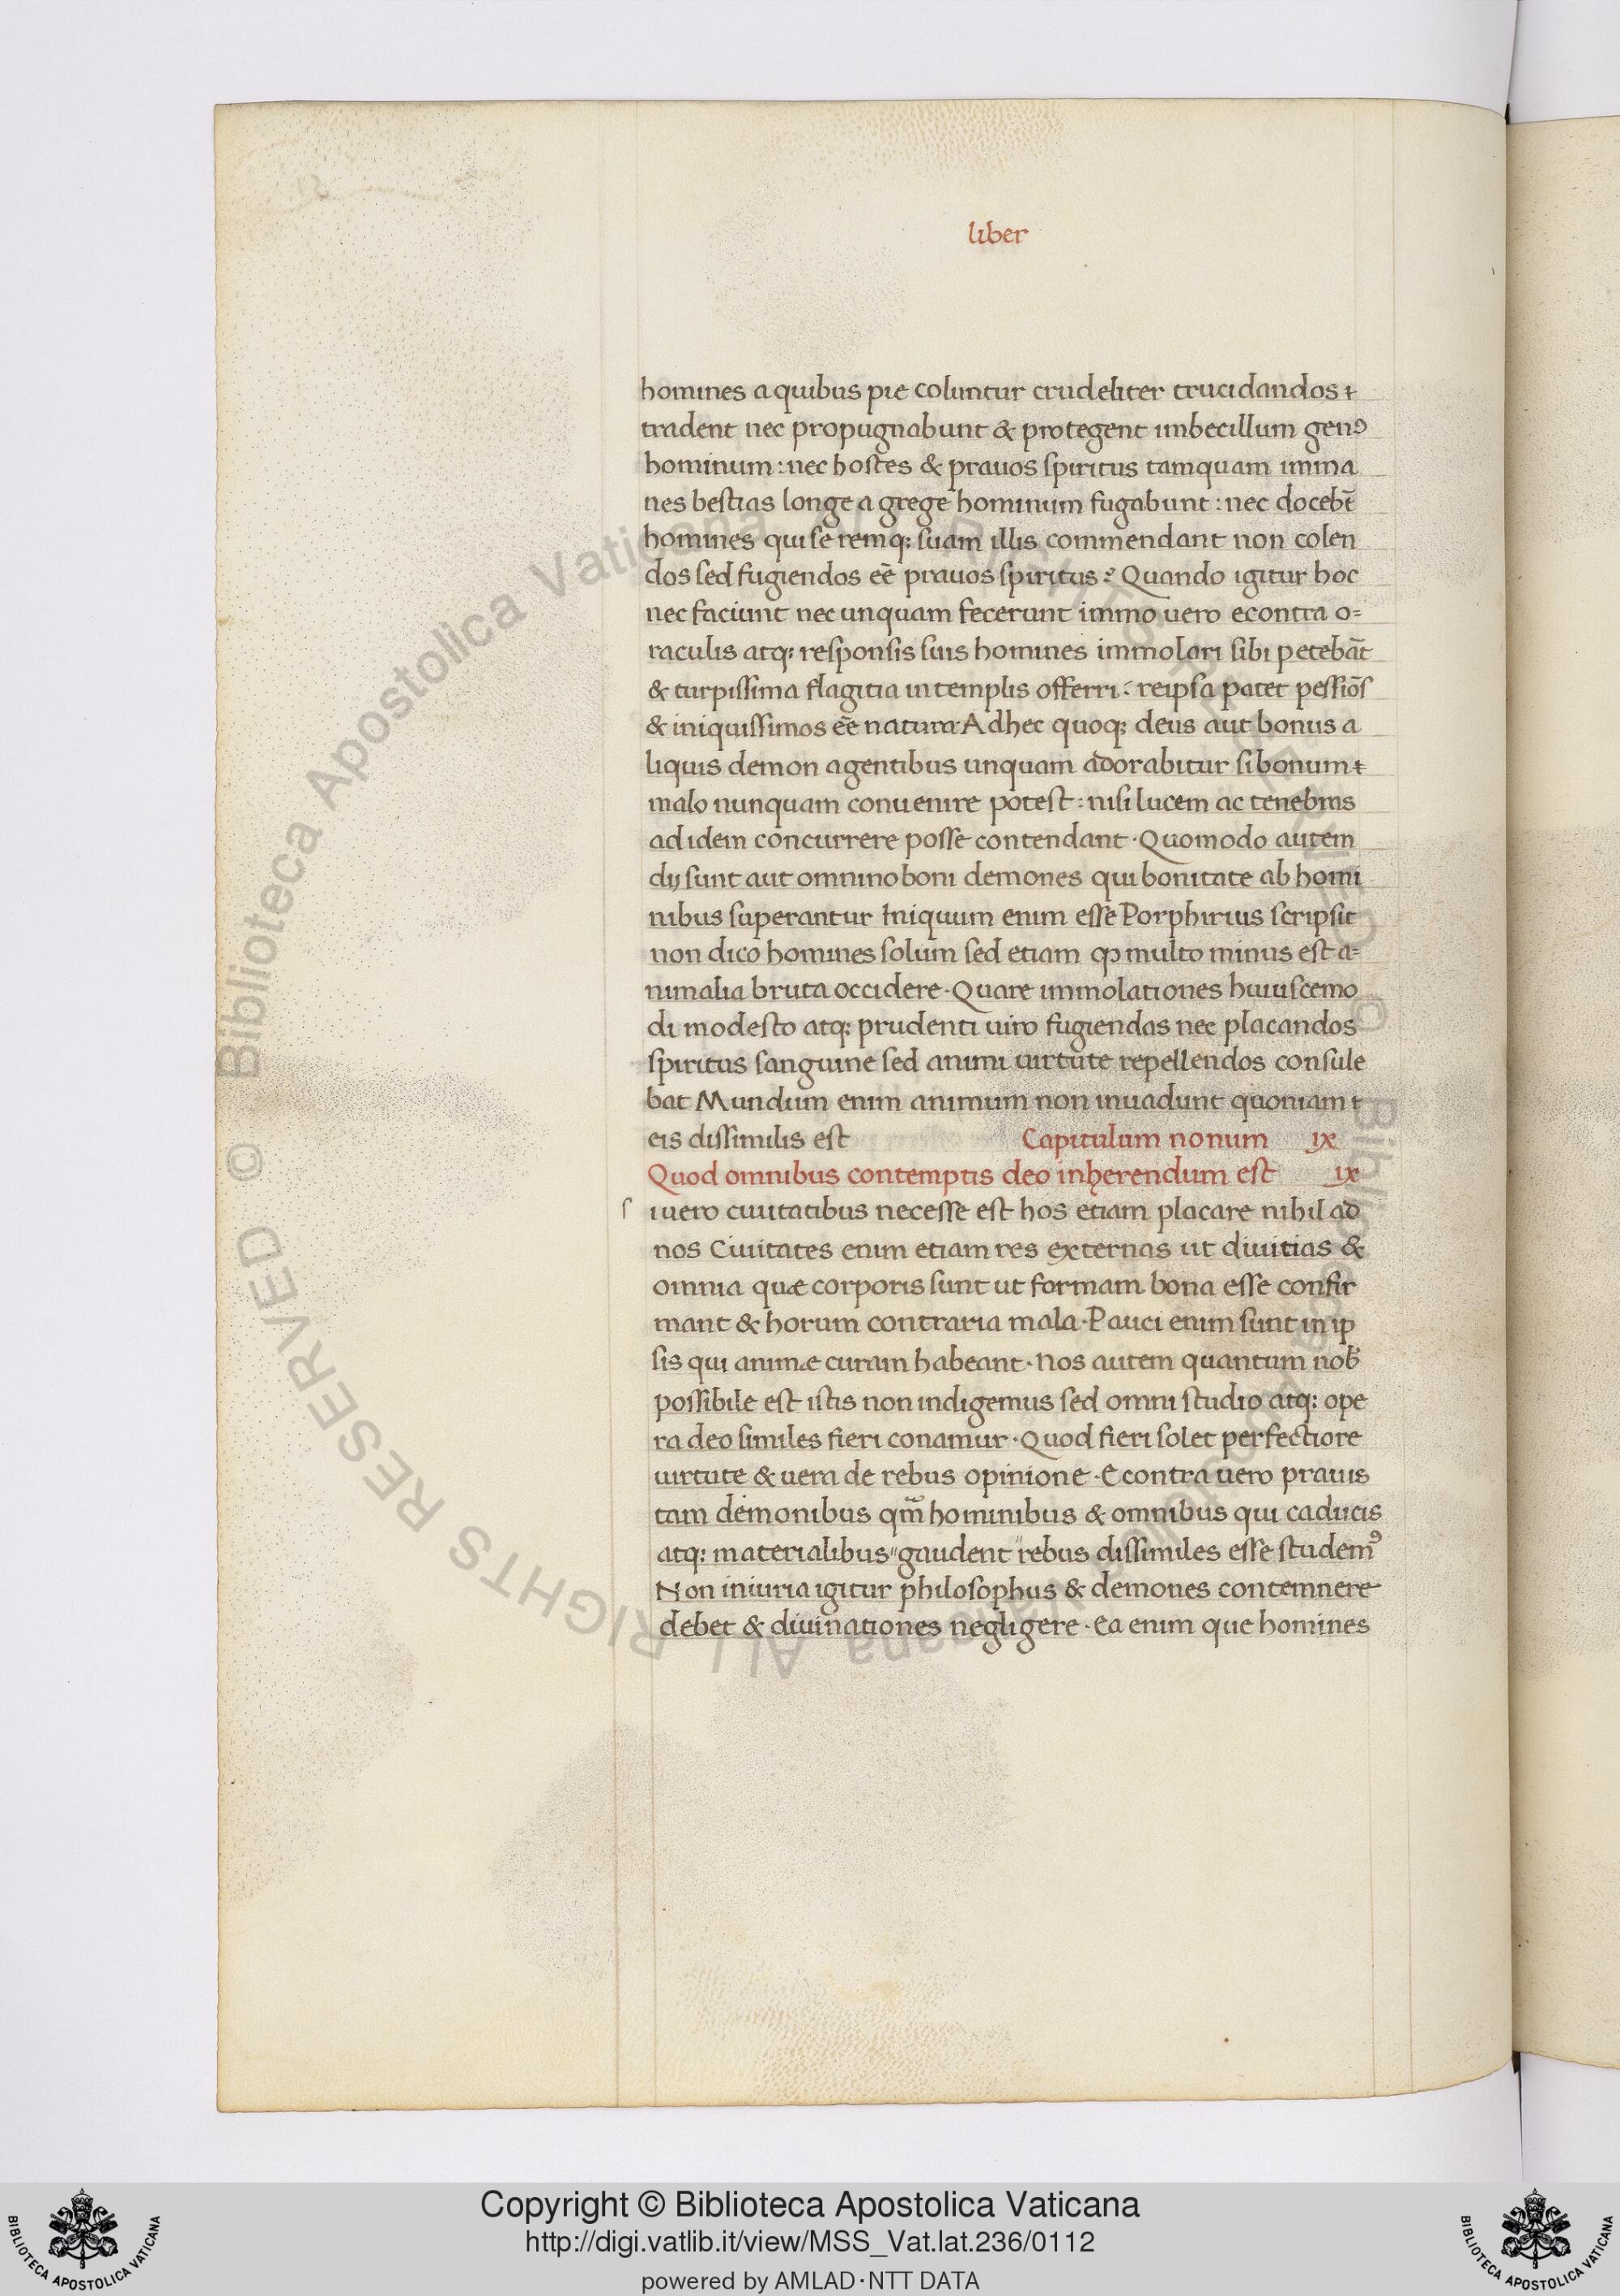 liber
homines a quibus pie coluntur crudeliter trucidandos
tradent nec propugnabunt & protegent imbecillum genꝰ
hominum: nec hostes & prauos spiritus tamquam imma
nes bestias longe a grege hominum fugabunt: nec docebt̄
homines qui se remq; suam illis commendant non colen
dos sed fugiendos eē prauos spiritus? Quando igitur hoc
nec faciunt nec unquam fecerunt immo uero econtra o=
raculis atq; responsis suis homines immolari sibi petebāt
& turpissima flagitia in templis offerri: reipsa patet pessiōs
& iniquissimos eē natura. Adhec quoq; deus aut bonus a
liquis demon agentibus unquam adorabitur si bonum
malo nunquam conuenire potest: nisi lucem ac tenebras
ad idem concurrere posse contendant. Quomodo autem
dij sunt aut omnino boni demones qui bonitate ab homi
nibus superantur Iniquum enim esse Porphirius scripsit
non dico homines solum sed etiam qͻ multo minus est a=
nimalia bruta occidere. Quare immolationes huiuscemo
di modesto atq; prudenti uiro fugiendas nec placandos
spiritus sanguine sed animi uirtute repellendos consule
bat Mundum enim animum non inuadunt quoniam
eis dissimilis est Capitulum nonum ix
Quod omnibus contemptis deo inhęrendum est ix
s iuero ciuitatibus necesse est hos etiam placare nihil ad
nos Ciuitates enim etiam res externas ut diuitias &
omnia quæ corporis sunt ut formam bona esse confir
mant & horum contraria mala. Pauci enim sunt in ip
sis qui animæ curam habeant. Nos autem quantum nob̄
possibile est istis non indigemus sed omni studio atq; ope
ra deo similes fieri conamur. Quod fieri solet perfectiore
uirtute & uera de rebus opinione. Econtra uero prauis
tam demonibus qm̄ hominibus & omnibus qui caducis
atq; materialibus "gaudent "rebus dissimiles esse studemꝰ
Non iniuria igitur philosophus & demones contemnere
debet & diuinationes negligere. Ea enim que homines
© Biblioteca Apostolica Vaticana ALL RIGHTS RESERVED
Copyright © Biblioteca Apostolica Vaticana
http://digi.vatlib.it/view/MSS_Vat.lat.236/0112
powered by AMLAD·NTT DATA
BIBLIOTECA APOSTOLICA VATICANA
BIBLIOTECA APOSTOLICA VATICANA